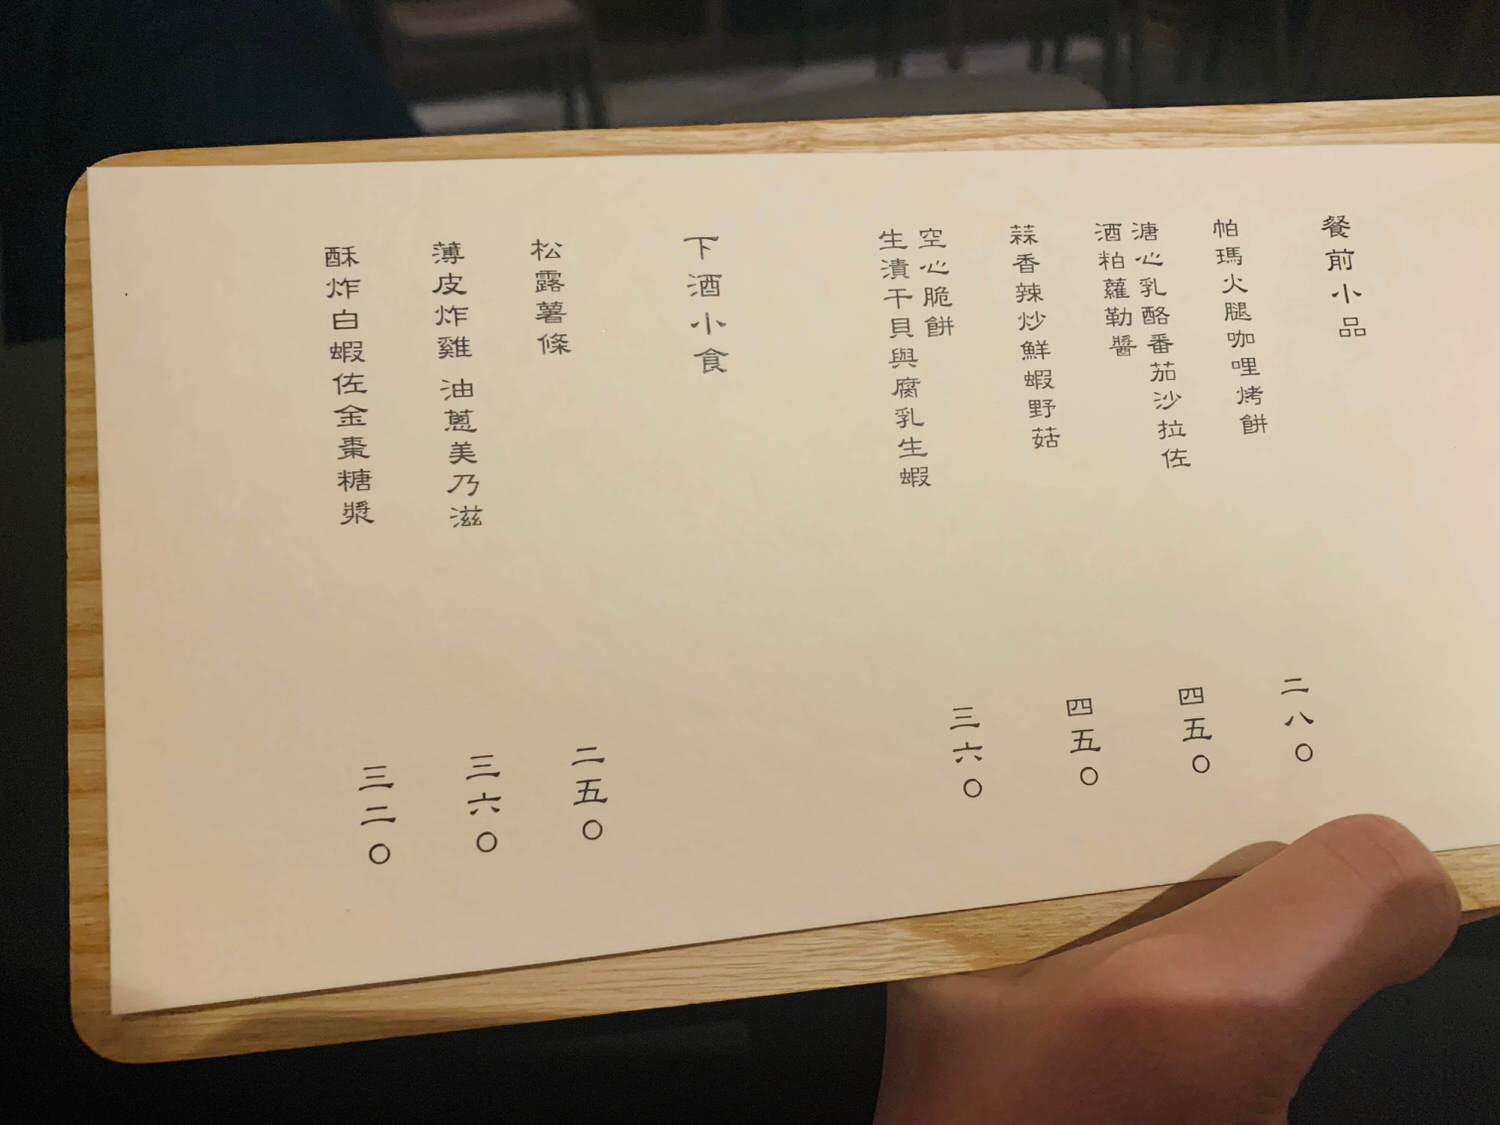 餐前小品
帕瑪火腿咖哩烤餅
二八〇
溏心乳酪番茄沙拉佐
酒粕蘿勒醬
四五〇
蒜香辣炒鮮蝦野菇
四五〇
空心脆餅
生漬干貝與腐乳生蝦
三六〇
下酒小食
松露薯條
二五〇
薄皮炸雞 油蔥美乃滋
三六〇
酥炸白蝦佐金棗糖漿
三二〇